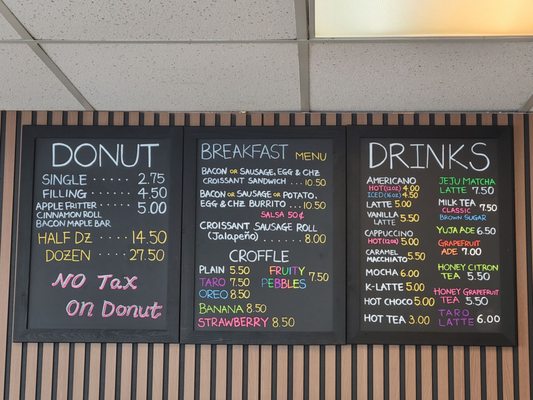 DONUT
SINGLE ...... 2.75
FILLING ...... 4.50
APPLE FRITTER ...... 5.00
CINNAMON ROLL
BACON MAPLE BAR
HALF DZ ...... 14.50
DOZEN ...... 27.50
NO TAX
ON DONUT
BREAKFAST MENU
BACON OR SAUSAGE, EGG & CHZ
CROISSANT SANDWICH ... 10.50
BACON OR SAUSAGE OR POTATO,
EGG & CHZ BURRITO .... 10.50
SALSA 50¢
CROISSANT SAUSAGE ROLL
(Jalapeño) ....... 8.00
CROFFLE
PLAIN 5.50
TARO 7.50
OREO 8.50
FRUITY
PEBBLES 7.50
BANANA 8.50
STRAWBERRY 8.50
DRINKS
AMERICANO
HOT(12OZ) 4.00
ICED(16OZ) 4.50
LATTE 5.00
VANILLA
LATTE 5.50
CAPPUCCINO
HOT(12OZ) 5.00
CARAMEL
MACCHIATO 5.50
MOCHA 6.00
K-LATTE 5.00
HOT CHOCO 5.00
HOT TEA 3.00
JEJU MATCHA
LATTE 7.50
MILK TEA 5.50
CLASSIC
BROWN SUGAR
YUJA ADE 6.50
GRAPEFRUIT
ADE 7.00
HONEY CITRON
TEA 5.50
HONEY GRAPEFRUIT
TEA 5.50
TARO
LATTE 6.00